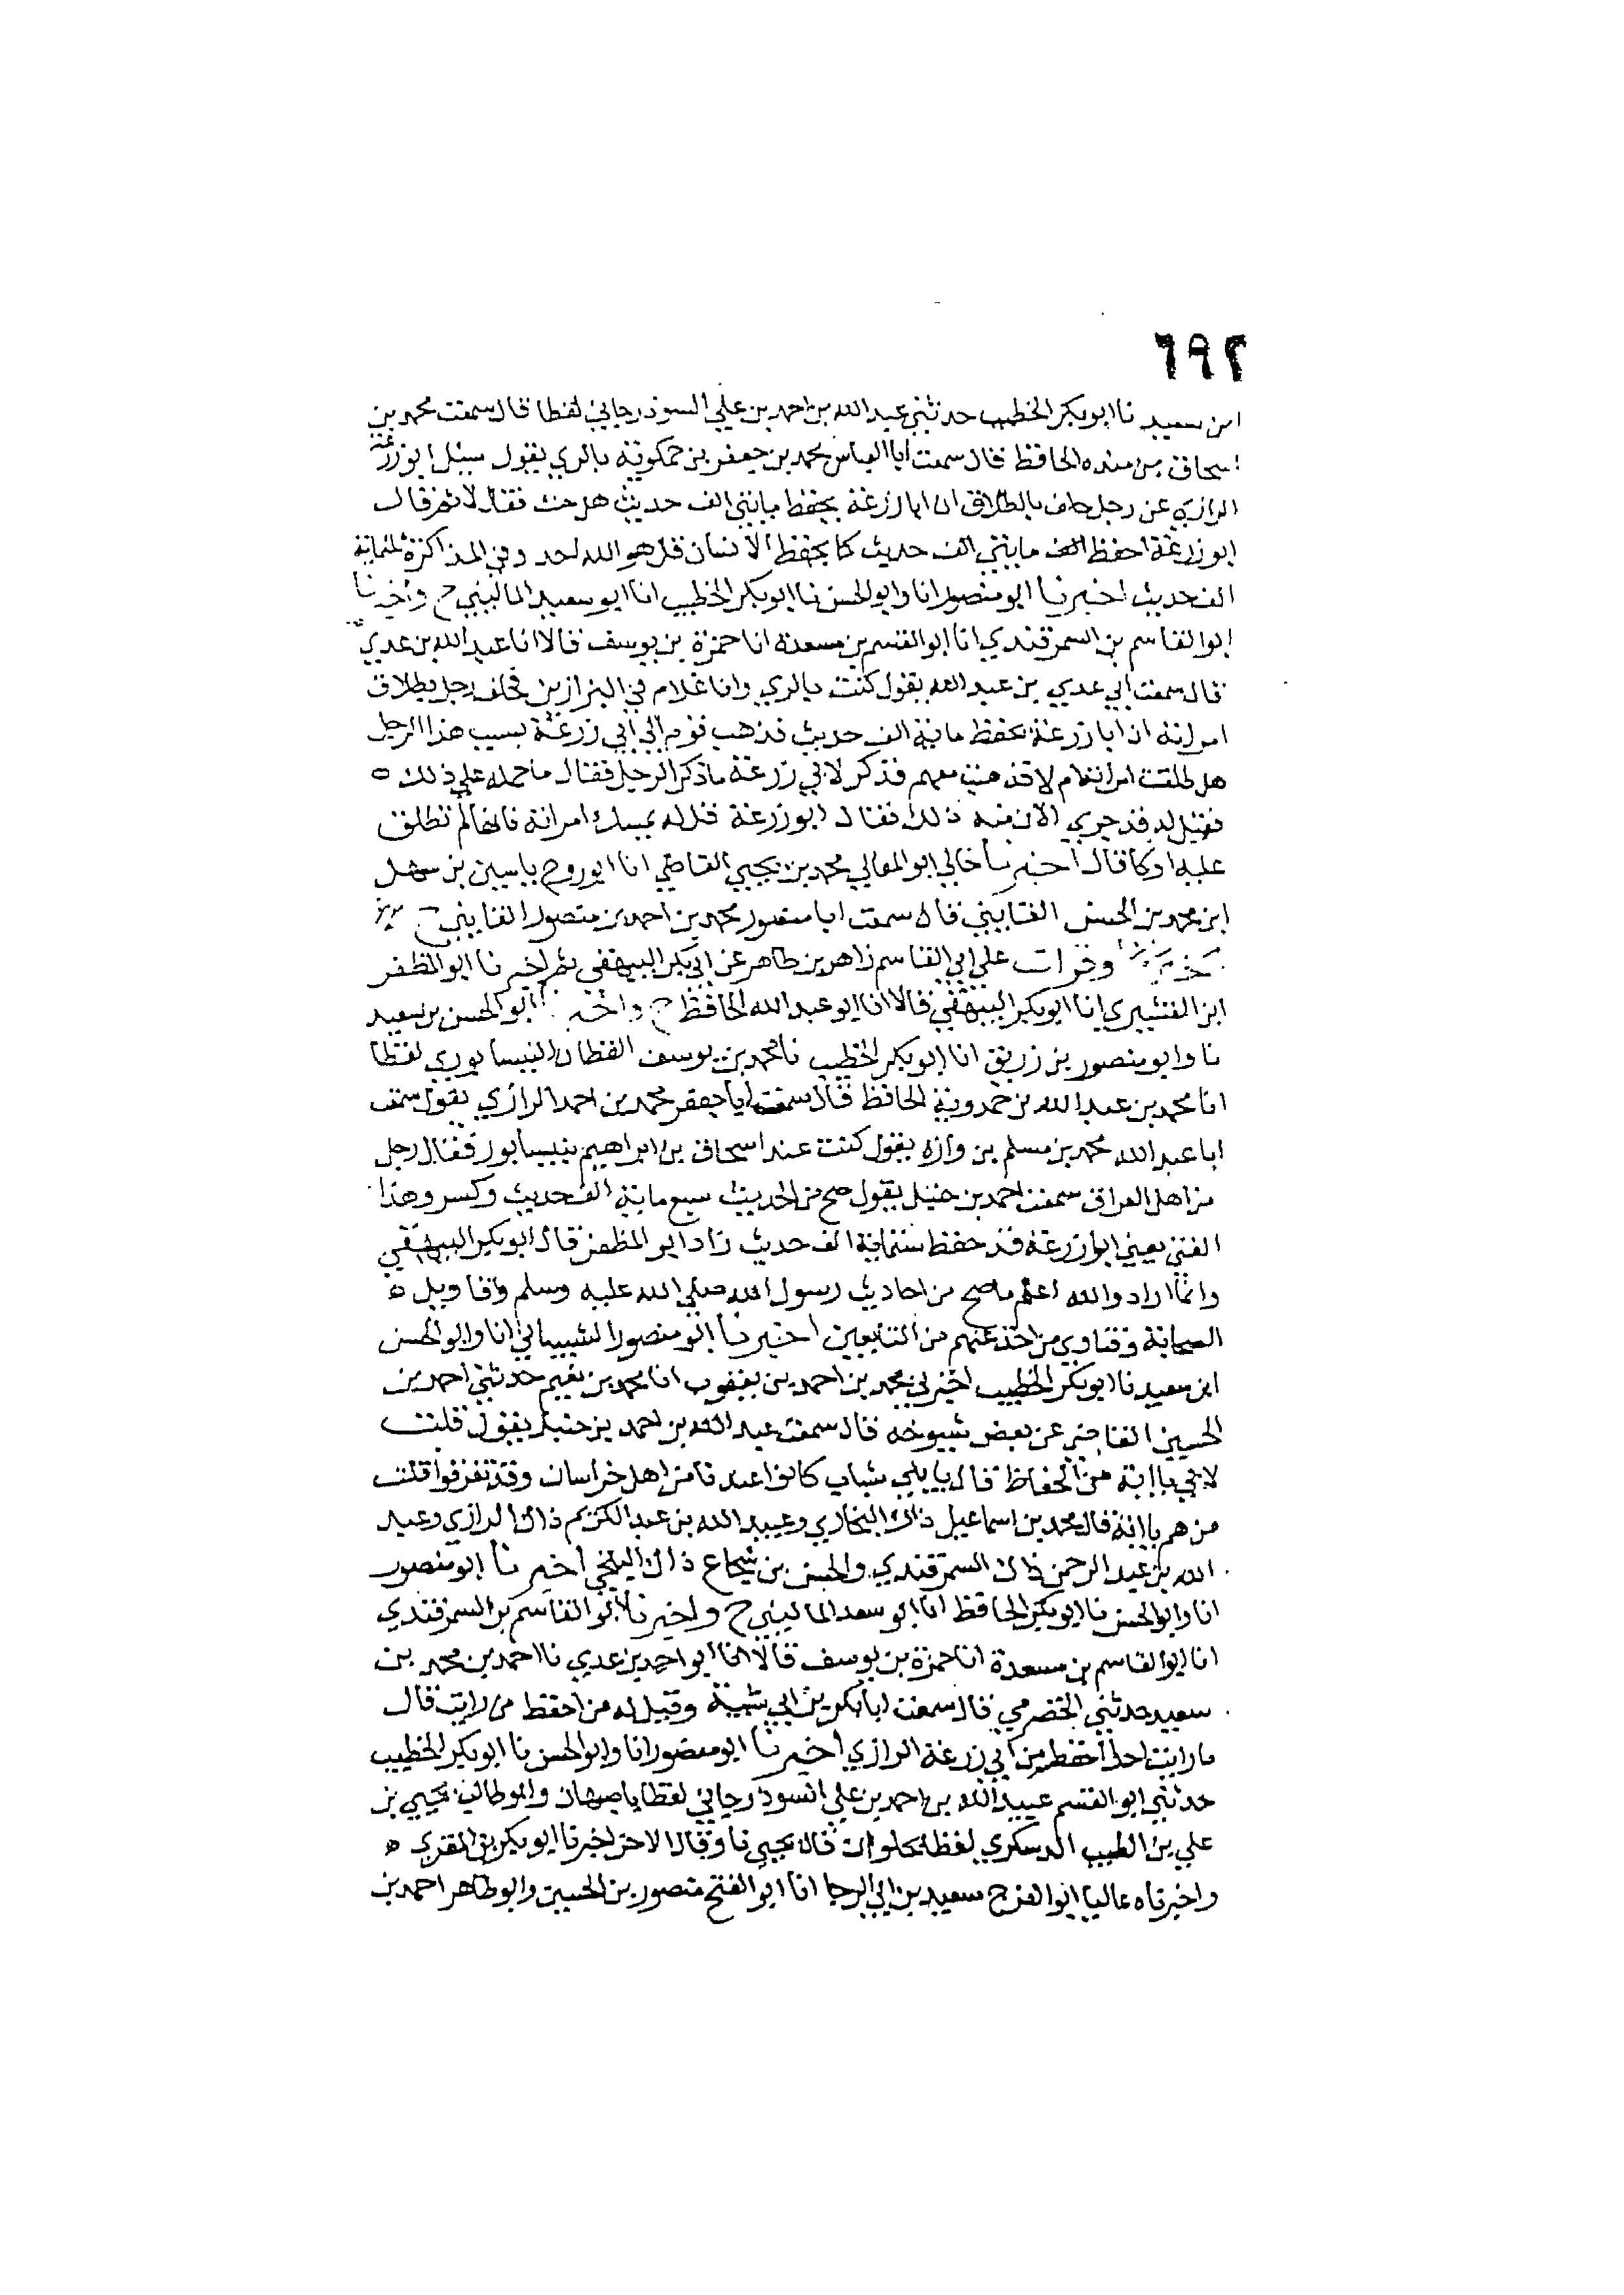 ٦٩٢
ابن سعيد نا ابو بكر الخطيب حدثني عبد الله بن احمد بن علي السوذرجاني لفظا قال سمعت محمد بن
اسحاق بن منده الحافظ قال سمعت ابا العباس محمد بن جعفر بن حمكويه بالري يقول سئل ابو زرعة
الرازي عن رجل حلف بالطلاق ان ابا زرعة يحفظ مايتي الف حديث هل حنث فقال لا ثم قال
ابو زرعة احفظ مايتي الف حديث كما يحفظ الانسان قل هو الله احد وفي المذاكرة ثلثماية
الف حديث اخبرنا ابو منصور انا وابو الحسن نا ابو بكر الخطيب انا ابو سعيد الماليني ح واخبرنا
ابو القاسم بن السمرقندي انا ابو القسم بن مسعدة انا حمزة بن يوسف قالا انا عبد الله بن عدي
قال سمعت ابي عدي بن عبد الله يقول كنت بالري وانا غلام في البزازين فحلف رجل بطلاق
امراته ان ابا زرعة يحفظ ماية الف حديث فذهب قوم الى ابي زرعة بسبب هذا الرجل
هل طلقت امراته ام لا فذهبت معهم فذكر لابي زرعة ما ذكر الرجل فقال ما حمله على ذلك ه
فقيل له قد جرى الان منه ذلك فقال ابو زرعة قل له يمسك امراته فانها لم تطلق
عليه او كما قال اخبرنا خالي ابو المعالي محمد بن يحيى القاضي انا ابو روح ياسين بن سهل
ابن محمد بن الحسن القايني قال سمعت ابا منصور محمد بن احمد بن منصور القايني ح
وقرات على ابي القاسم زاهر بن طاهر عن ابي بكر البيهقي ثم اخبرنا ابو المظفر
ابن القشيري انا ابو بكر البيهقي قالا انا ابو عبد الله الحافظ ح واخبرنا ابو الحسن بن سعيد
نا وابو منصور بن زريق انا ابو بكر الخطيب نا محمد بن يوسف القطان النيسابوري لفظا
انا محمد بن عبد الله بن حمدويه الحافظ قال سمعت ابا جعفر محمد بن احمد الرازي يقول سمعت
ابا عبد الله محمد بن مسلم بن واره يقول كنت عند اسحاق بن ابراهيم بنيسابور فقال رجل
من اهل العراق سمعت احمد بن حنبل يقول صح من الحديث سبع ماية الف حديث وكسر وهذا
الفتى يعني ابو زرعة قد حفظ ستماية الف حديث زاد ابو المظفر قال ابو بكر البيهقي
وانما اراد والله اعلم ما صح من احاديث رسول الله صلى الله عليه وسلم واقاويل ه
الصحابة وفتاوى من اخذ عنهم من التابعين اخبرنا ابو منصور الشيباني انا وابو الحسن
ابن سعيد نا ابو بكر الخطيب اخبرني محمد بن احمد بن يعقوب انا محمد بن نعيم حدثني احمد بن
الحسين القاضي عن بعض شيوخه قال سمعت عبد الله بن احمد بن حنبل يقول قلت
لابي يا ابة من الحفاظ قال يا بني شباب كانوا عندنا من اهل خراسان وقد تفرقوا قلت
من هم يا ابة قال محمد بن اسماعيل ذاك البخاري وعبيد الله بن عبد الكريم ذاك الرازي وعبد
الله بن عبد الرحمن ذاك السمرقندي والحسن بن شجاع ذاك البلخي اخبرنا ابو منصور
انا وابو الحسن نا ابو بكر الحافظ انا ابو سعد الماليني ح واخبرنا ابو القاسم بن السمرقندي
انا ابو القاسم بن مسعدة انا حمزة بن يوسف قالا انا ابو احمد بن عدي نا احمد بن محمد بن
سعيد حدثني الحضرمي قال سمعت ابا بكر بن ابي شيبة وقيل له من احفظ من رايت قال
ما رايت احدا احفظ من ابي زرعة الرازي اخبرنا ابو منصور انا وابو الحسن نا ابو بكر الخطيب
حدثني ابو القسم عبيد الله بن احمد بن علي السوذرجاني لفظا باصبهان وابو طالب يحيى بن
علي بن الطيب الدسكري لفظا بحلوان قال يحيى نا وقال الاخر اخبرنا ابو بكر بن المقرى ه
واخبرناه عاليا ابو الفرج سعيد بن ابي الرجا انا ابو الفتح منصور بن الحسين وابو طاهر احمد بن